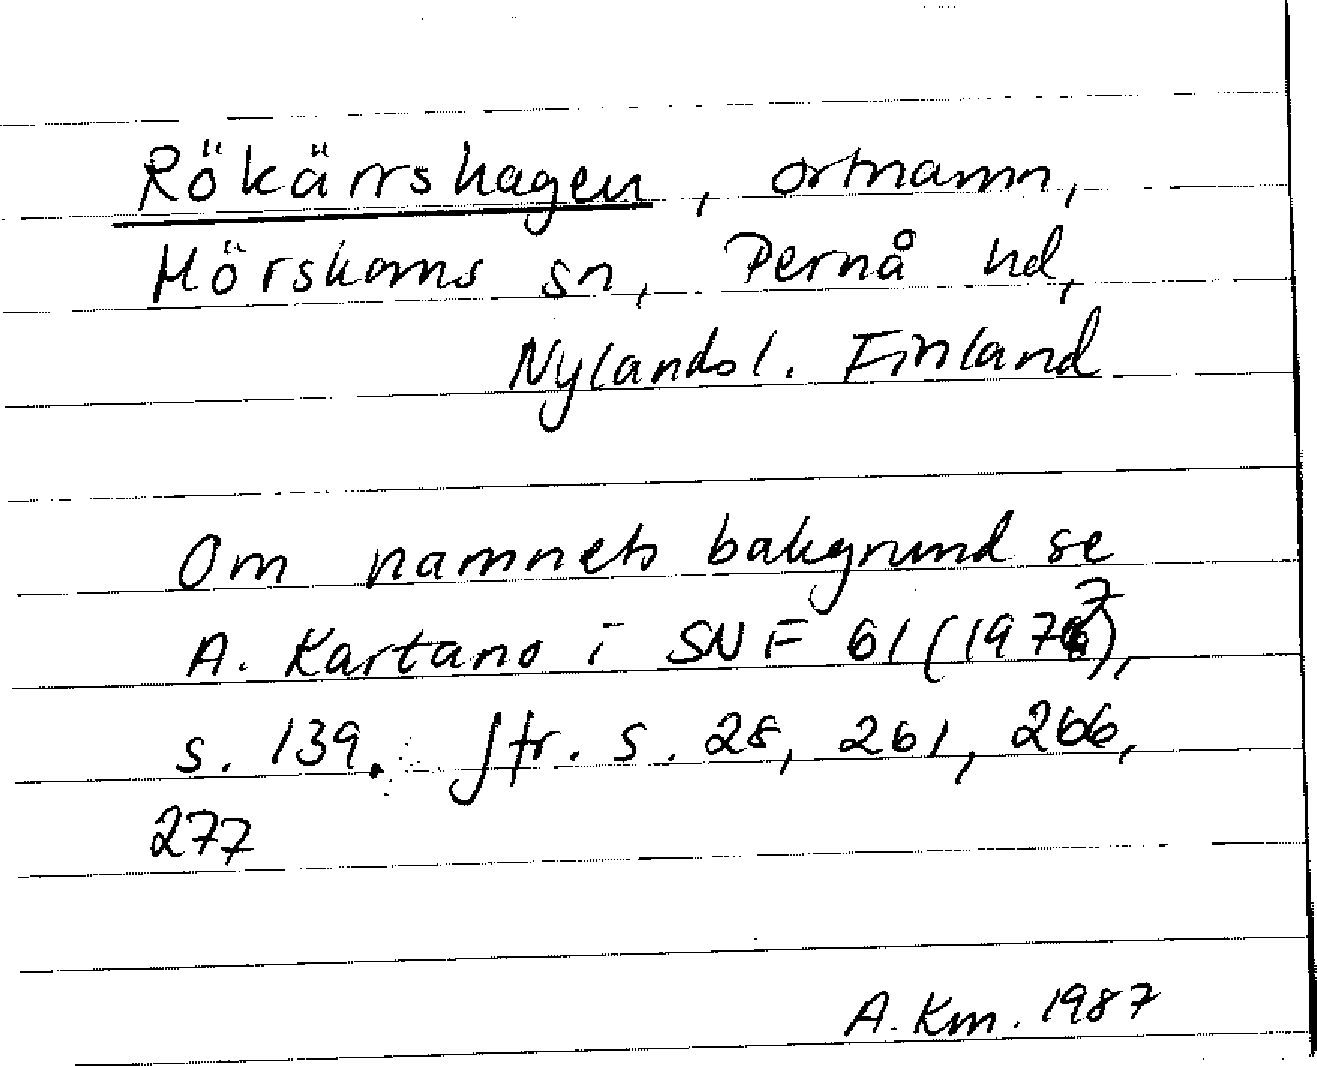 Rökärrshagen, ortnamn,
Mörskoms sn, Pernå hd,
Nylandsl. Finland
Om namnets bakgrund se
A. Kartano i SNF 61 (1977),
s. 139. Jfr. s. 28, 261, 266,
277
A. Km. 1987